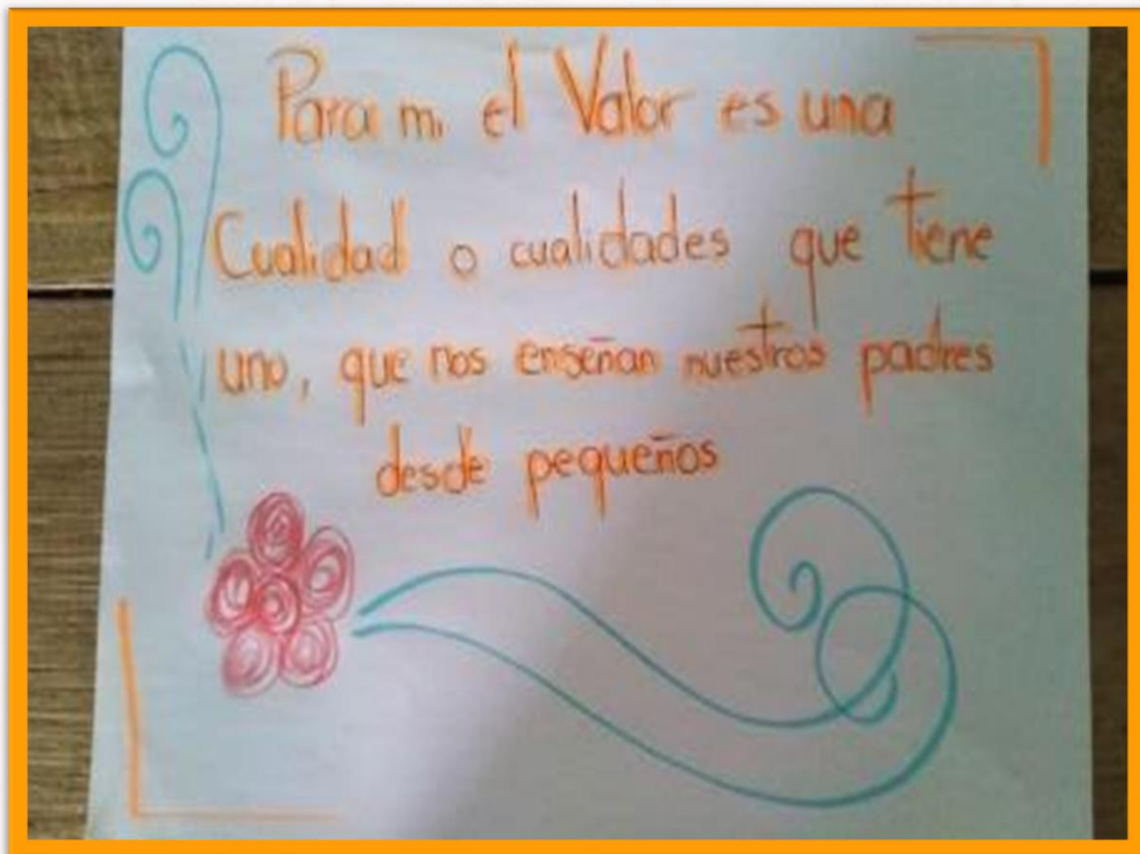 Para mi el Valor es una
Cualidad o cualidades que tiene
uno, que nos enseñan nuestros padres
desde pequeños